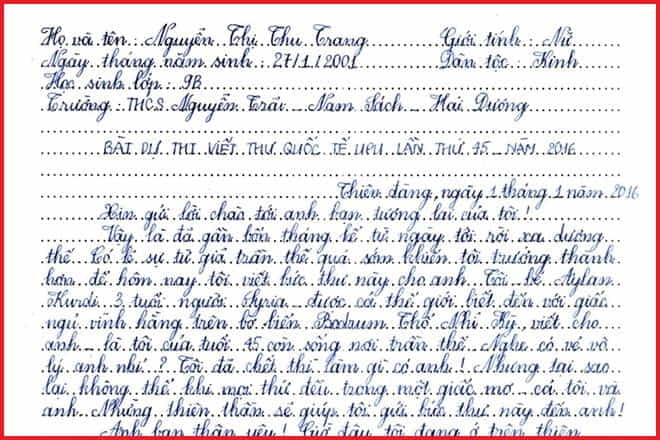 Họ và tên: Nguyễn Thị Thu Trang Giới tính: Nữ
Ngày tháng năm sinh: 27/1/2001 Dân tộc: Kinh
Học sinh lớp: 9B
Trường: THCS Nguyễn Trãi - Nam Sách - Hải Dương
BÀI DỰ THI VIẾT THƯ QUỐC TẾ UPU LẦN THỨ 45 - NĂM 2016
Thiên đàng, ngày 1 tháng 1 năm 2016
Xin gửi lời chào tới anh bạn tương lai của tôi!
Vậy là đã gần bốn tháng kể từ ngày tôi rời xa dương
thế. Có lẽ sự từ giã trần thế quá sớm khiến tôi trưởng thành
hơn để hôm nay tôi viết bức thư này cho anh. Tôi, bé Aylan
Kurdi 3 tuổi người Syria được cả thế giới biết đến với giấc
ngủ vĩnh hằng trên bờ biển Bodrum Thổ Nhĩ Kỳ, viết cho
anh - là tôi của tuổi 45 còn sống nơi trần thế. Nghe có vẻ vô
lý anh nhỉ? Tôi đã chết thì làm gì có anh! Nhưng tại sao
lại không thể khi mọi thứ đều trong một giấc mơ cả tôi và
anh. Những thiên thần sẽ giúp tôi gửi bức thư này đến anh!
Anh bạn thân yêu! Giờ đây tôi đang ở trên thiên